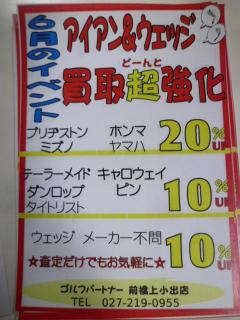 6月のイベント
アイアン&ウェッジ
どーんと
買取超強化
ブリヂストン ホンマ
ミズノ ヤマハ
20%UP
テーラーメイド キャロウェイ
ダンロップ ピン
タイトリスト
10%UP
ウェッジ メーカー不問
10%UP
★査定だけでもお気軽に★
ゴルフパートナー 前橋上小出店
TEL 027-219-0955